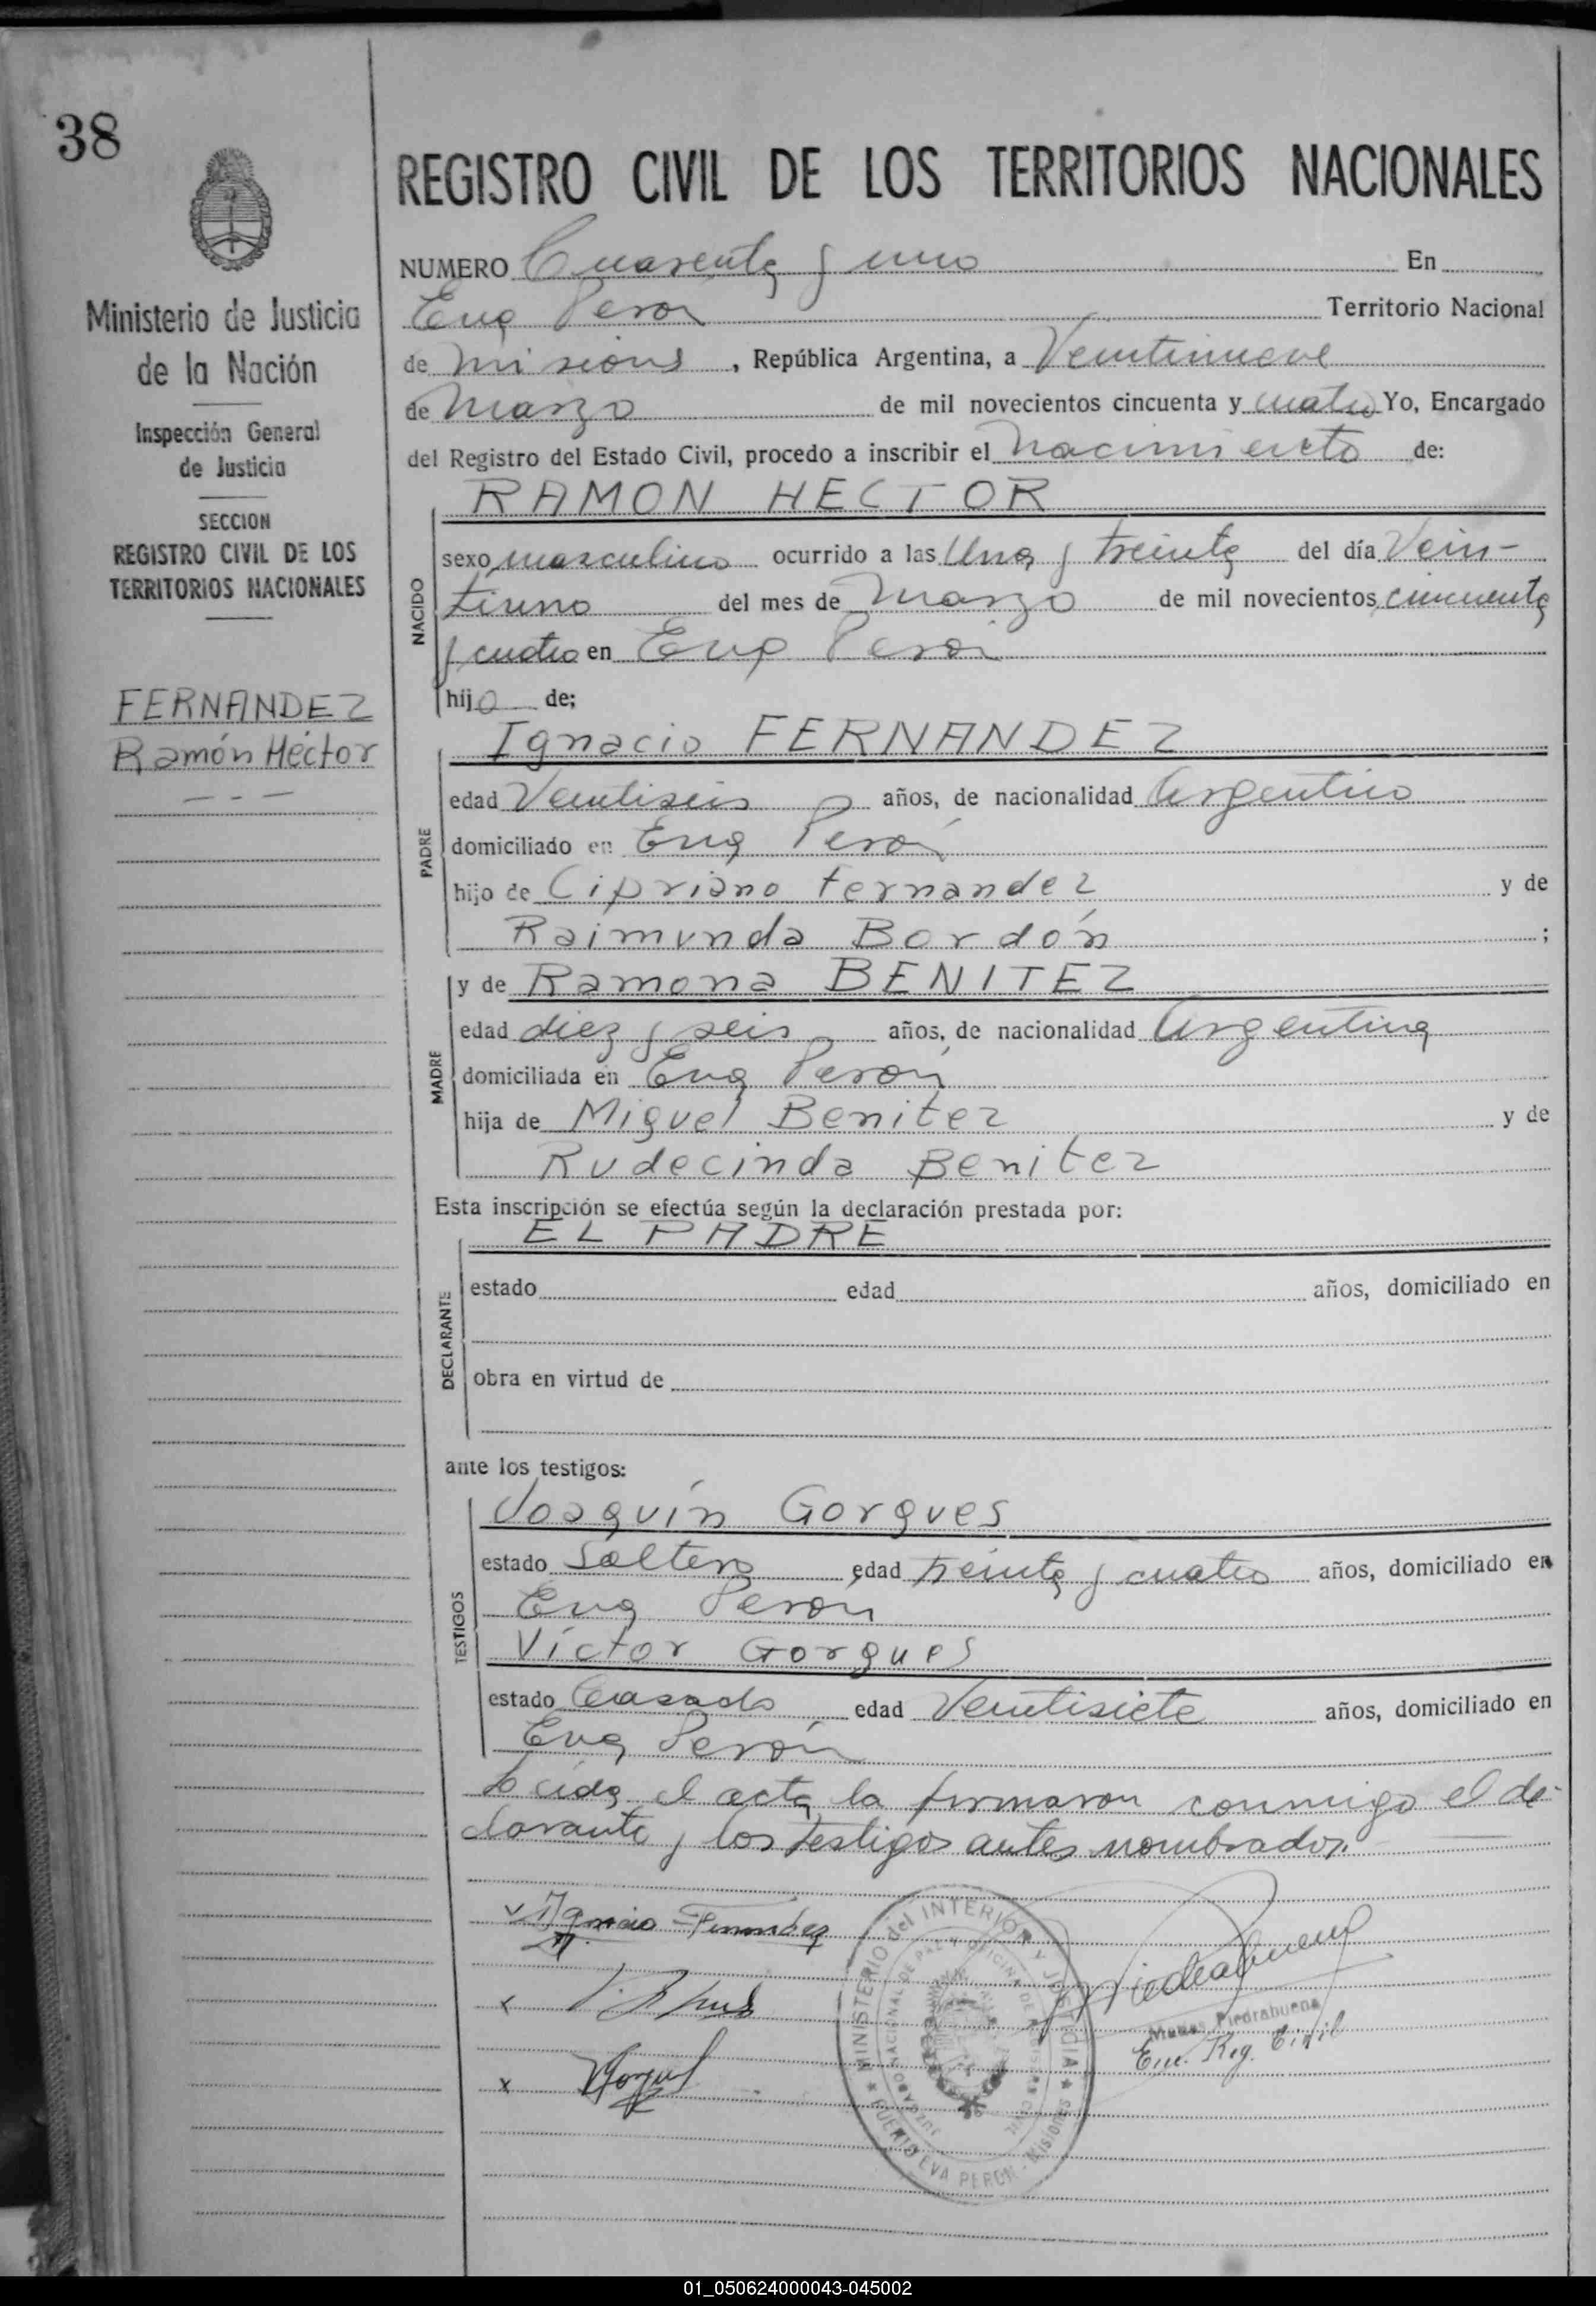 38
REGISTRO CIVIL DE LOS TERRITORIOS NACIONALES
Ministerio de Justicia
de la Nación
Inspección General
de Justicia
SECCION
REGISTRO CIVIL DE LOS
TERRITORIOS NACIONALES
FERNANDEZ
Ramón Héctor
NUMERO Cuarenta y uno En
Eva Perón Territorio Nacional
de Misiones, República Argentina, a Veintinueve
de Marzo de mil novecientos cincuenta y cuatro Yo, Encargado
del Registro del Estado Civil, procedo a inscribir el nacimiento de:
RAMON HECTOR
NACIDO
sexo masculino ocurrido a las Una y treinta del día Vein-
tiuno del mes de Marzo de mil novecientos cincuenta
y cuatro en Eva Perón
hijo de;
Ignacio FERNANDEZ
PADRE
edad Veintiseis años, de nacionalidad Argentino
domiciliado en Eva Perón
hijo de Cipriano Fernandez y de
Raimunda Bordón ;
y de Ramona BENITEZ
MADRE
edad diez y seis años, de nacionalidad Argentina
domiciliada en Eva Perón
hija de Miguel Benitez y de
Rudecinda Benitez
Esta inscripción se efectúa según la declaración prestada por:
EL PADRE
DECLARANTE
estado edad años, domiciliado en
obra en virtud de
ante los testigos:
Joaquín Gorgues
TESTIGOS
estado Soltero edad treinta y cuatro años, domiciliado en
Eva Perón
Víctor Gorgues
estado Casado edad Veintisiete años, domiciliado en
Eva Perón
Leída el acta la firmaron conmigo el de-
clarante y los testigos antes nombrados.
Ignacio Fernandez
MINISTERIO del INTERIOR Y JUSTICIA
PUERTO EVA PERON - Misiones
Piedrabuena
Enc. Reg. Civil
01_050624000043-045002